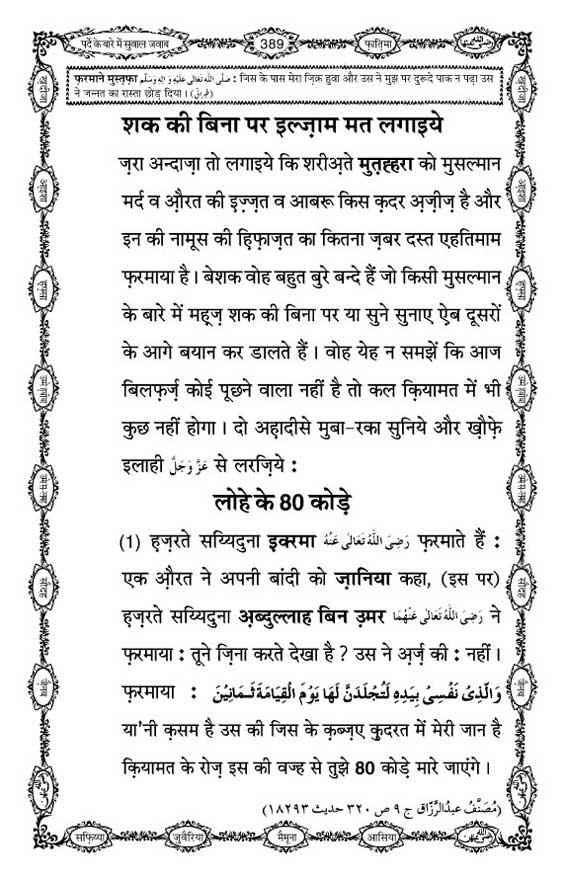 पर्दे के बारे में सुवाल जवाब
389
फ़ातिमा
फरमाने मुस्तफ़ा صَلَّى اللّٰهُ تَعَالٰى عَلَيْهِ وَاٰلِهٖ وَسَلَّم : जिस के पास मेरा ज़िक्र हुवा और उस ने मुझ पर दुरूदे पाक न पढ़ा उस
ने जन्नत का रास्ता छोड़ दिया । (طبرانی)
शक की बिना पर इल्ज़ाम मत लगाइये
ज़रा अन्दाज़ा तो लगाइये कि शरीअ़ते मुत़ह्हरा को मुसल्मान
मर्द व औ़रत की इ़ज़्ज़त व आबरू किस क़दर अ़ज़ीज़ है और
इन की नामूस की ह़िफ़ाज़त का कितना ज़बर दस्त एहतिमाम
फ़रमाया है । बेशक वोह बहुत बुरे बन्दे हैं जो किसी मुसल्मान
के बारे में मह़ूज़ शक की बिना पर या सुने सुनाए ऐ़ब दूसरों
के आगे बयान कर डालते हैं । वोह येह न समझें कि आज
बिलफ़र्ज़ कोई पूछने वाला नहीं है तो कल क़ियामत में भी
कुछ नहीं होगा । दो अह़ादीसे मुबा-रका सुनिये और ख़ौफ़े
इलाही عَزَّ وَجَلَّ से लरज़िये :
लोहे के 80 कोड़े
(1) ह़ज़रते सय्यिदुना इ़क्रमा رَضِىَ اللّٰهُ تَعَالٰى عَنْهُ फ़रमाते हैं :
एक औ़रत ने अपनी बांदी को ज़ानिया कहा, (इस पर)
ह़ज़रते सय्यिदुना अ़ब्दुल्लाह बिन उ़मर رَضِىَ اللّٰهُ تَعَالٰى عَنْهُمَا ने
फ़रमाया : तूने ज़िना करते देखा है ? उस ने अ़र्ज़ की : नहीं ।
फ़रमाया : وَالَّذِىْ نَفْسِىْ بِيَدِهٖ لَتُجْلَدَنَّ لَهَا يَوْمَ الْقِيَامَةِ ثَمَانِيْنَ
या'नी क़सम है उस की जिस के क़ब्ज़ए क़ुदरत में मेरी जान है
क़ियामत के रोज़ इस की वज्ह से तुझे 80 कोड़े मारे जाएंगे ।
(مُصَنَّف عبدالرَّزّاق ج ٩ ص ٣٢٠ حديث ١٨٢٩٣)
सफ़िय्या
जुवैरिया
मैमूना
आसिया